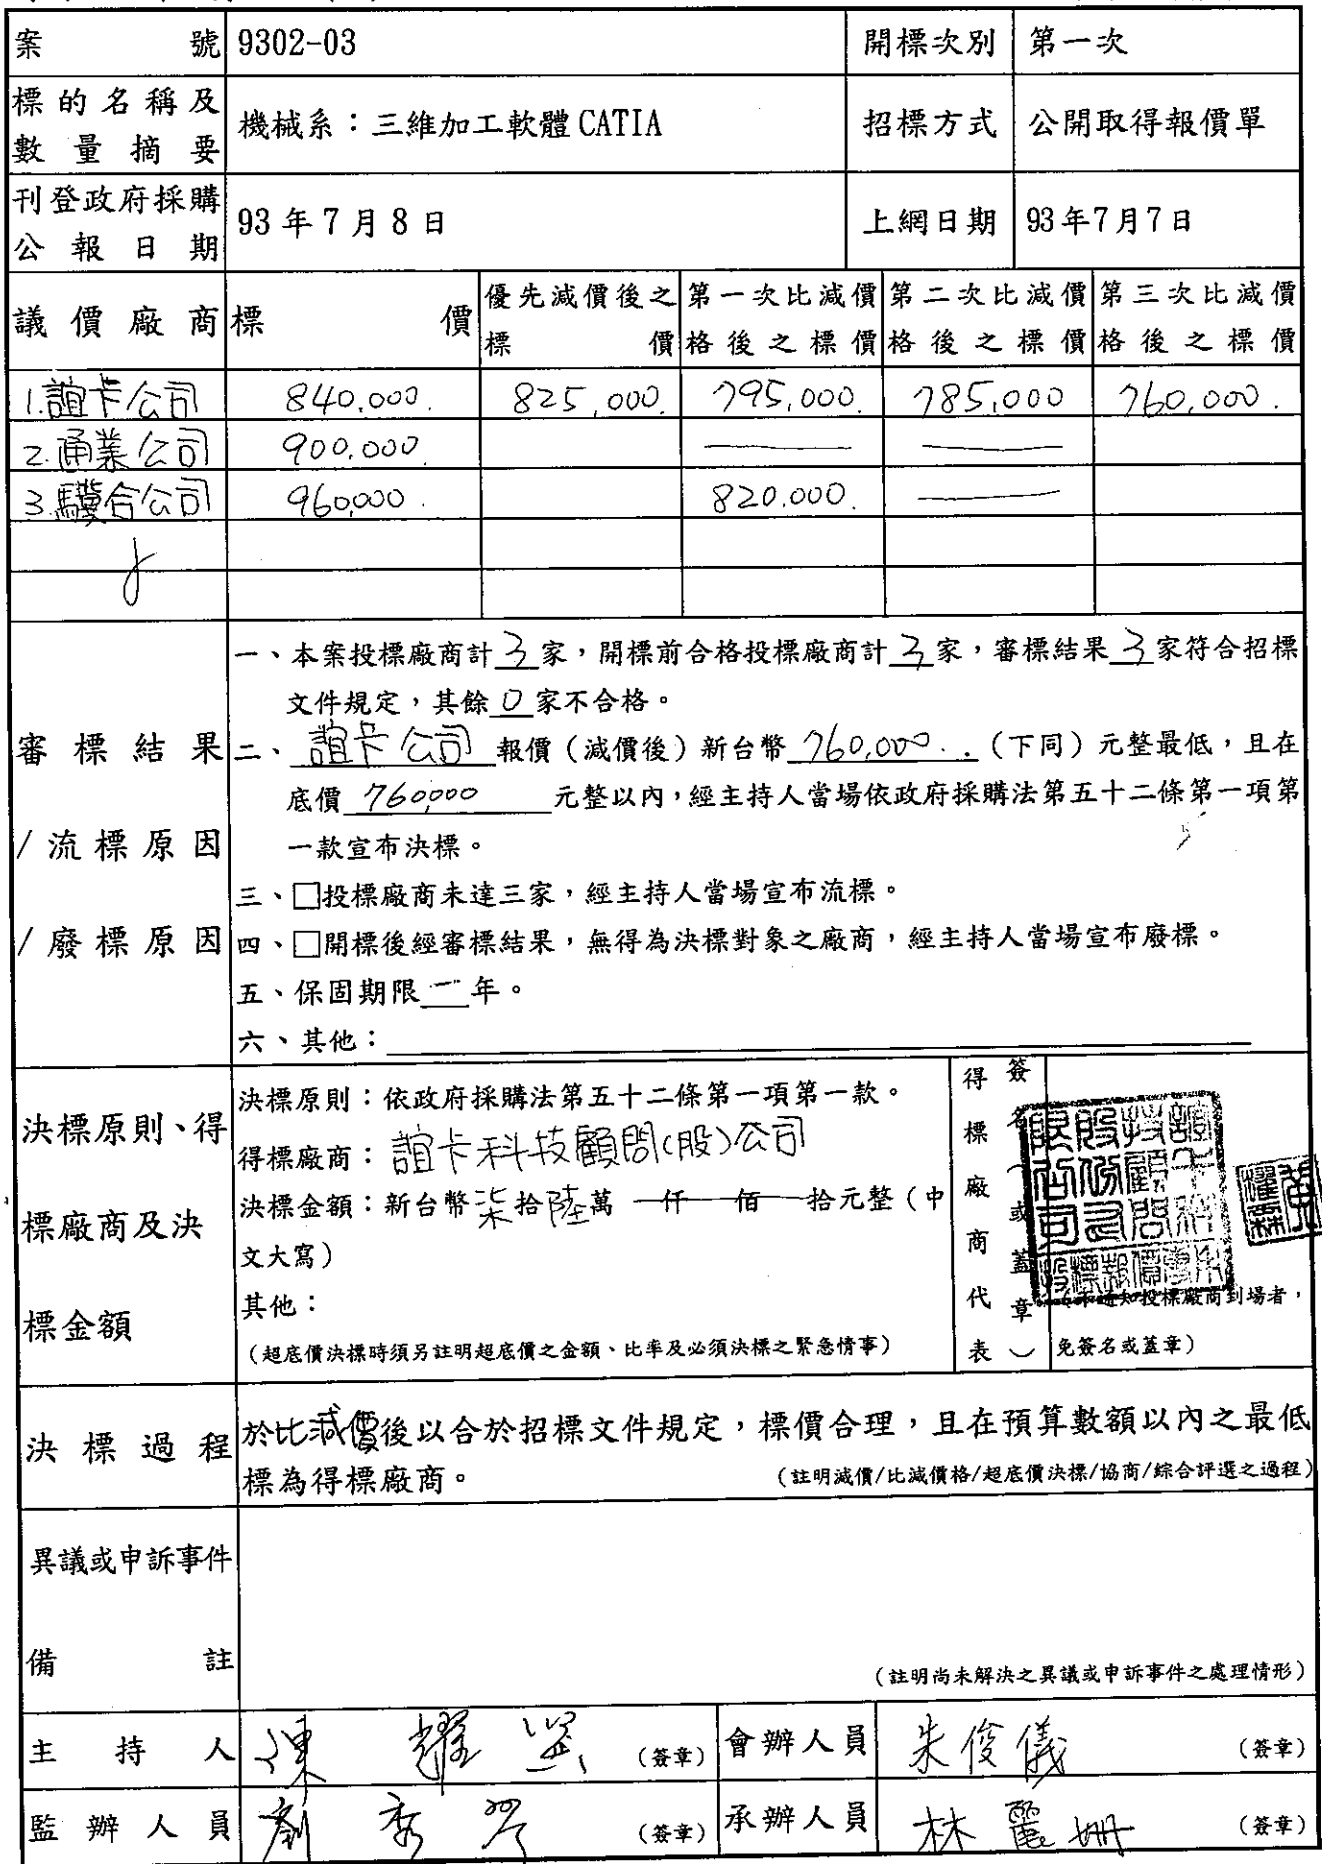 案號 9302-03 開標次別 第一次
標的名稱及
數量摘要 機械系：三維加工軟體CATIA 招標方式 公開取得報價單
刊登政府採購
公報日期 93年7月8日 上網日期 93年7月7日
議價廠商 標價 優先減價後之標價 第一次比減價格後之標價 第二次比減價格後之標價 第三次比減價格後之標價
1.誼卡公司 840,000. 825,000. 795,000. 785,000 760,000.
2.通業公司 900,000.
3.驥合公司 960,000. 820,000.
審標結果
/流標原因
/廢標原因
一、本案投標廠商計 3 家，開標前合格投標廠商計 3 家，審標結果 3 家符合招標
文件規定，其餘 0 家不合格。
二、誼卡公司 報價（減價後）新台幣 760,000.（下同）元整最低，且在
底價 760,000 元整以內，經主持人當場依政府採購法第五十二條第一項第
一款宣布決標。
三、□投標廠商未達三家，經主持人當場宣布流標。
四、□開標後經審標結果，無得為決標對象之廠商，經主持人當場宣布廢標。
五、保固期限 年。
六、其他：
決標原則、得
標廠商及決
標金額
決標原則：依政府採購法第五十二條第一項第一款。
得標廠商：誼卡科技顧問(股)公司
決標金額：新台幣柒拾陸萬 仟 佰 拾元整（中
文大寫）
其他：
（超底價決標時須另註明超底價之金額、比率及必須決標之緊急情事）
得標廠商代表
簽名（或蓋章）
誼卡科技顧問股份有限公司
投標報價專用
未通知投標廠商到場者，
免簽名或蓋章）
決標過程 於比減價後以合於招標文件規定，標價合理，且在預算數額以內之最低
標為得標廠商。 （註明減價/比減價格/超底價決標/協商/綜合評選之過程）
異議或申訴事件
備註 （註明尚未解決之異議或申訴事件之處理情形）
主持人 陳耀 （簽章） 會辦人員 朱俊儀 （簽章）
監辦人員 劉秀琴 （簽章） 承辦人員 林麗姍 （簽章）